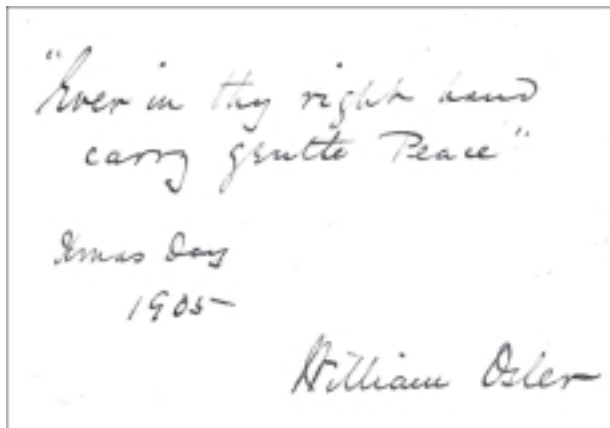 "Ever in thy right hand
carry gentle Peace"
Xmas Day
1905
William Osler